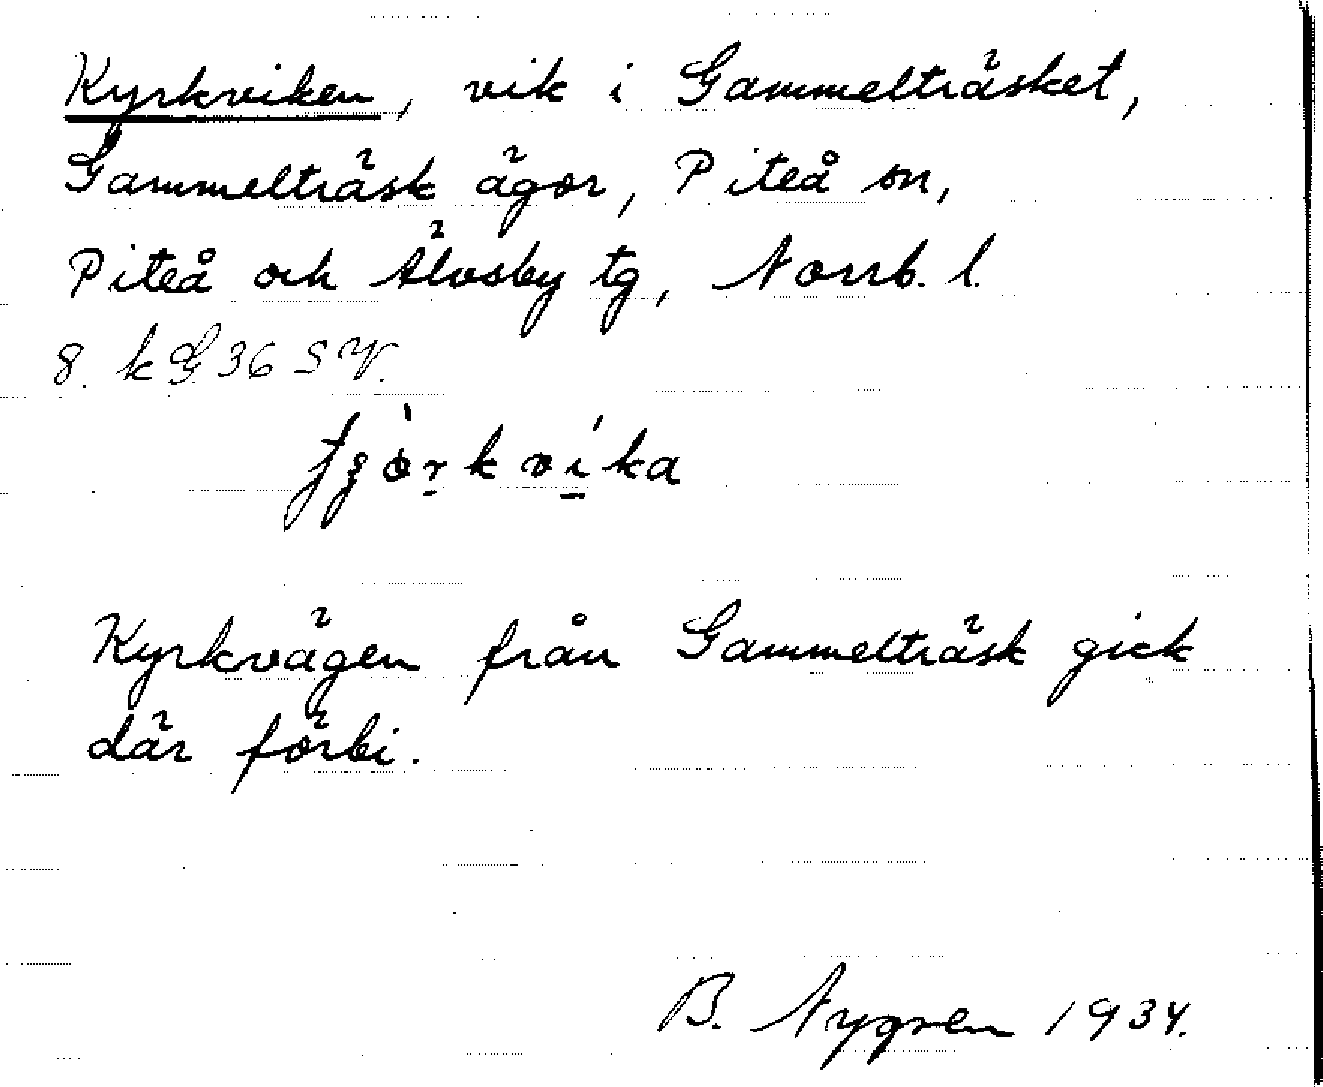 Kyrkviken, vik i Gammelträsket,
Gammelträsk ägor, Piteå sn,
Piteå och Älvsby tg, Norrb. l.
8. k G 36 SV.
Kyrkvägen från Gammelträsk gick
där förbi.
B. Nygren 1934.